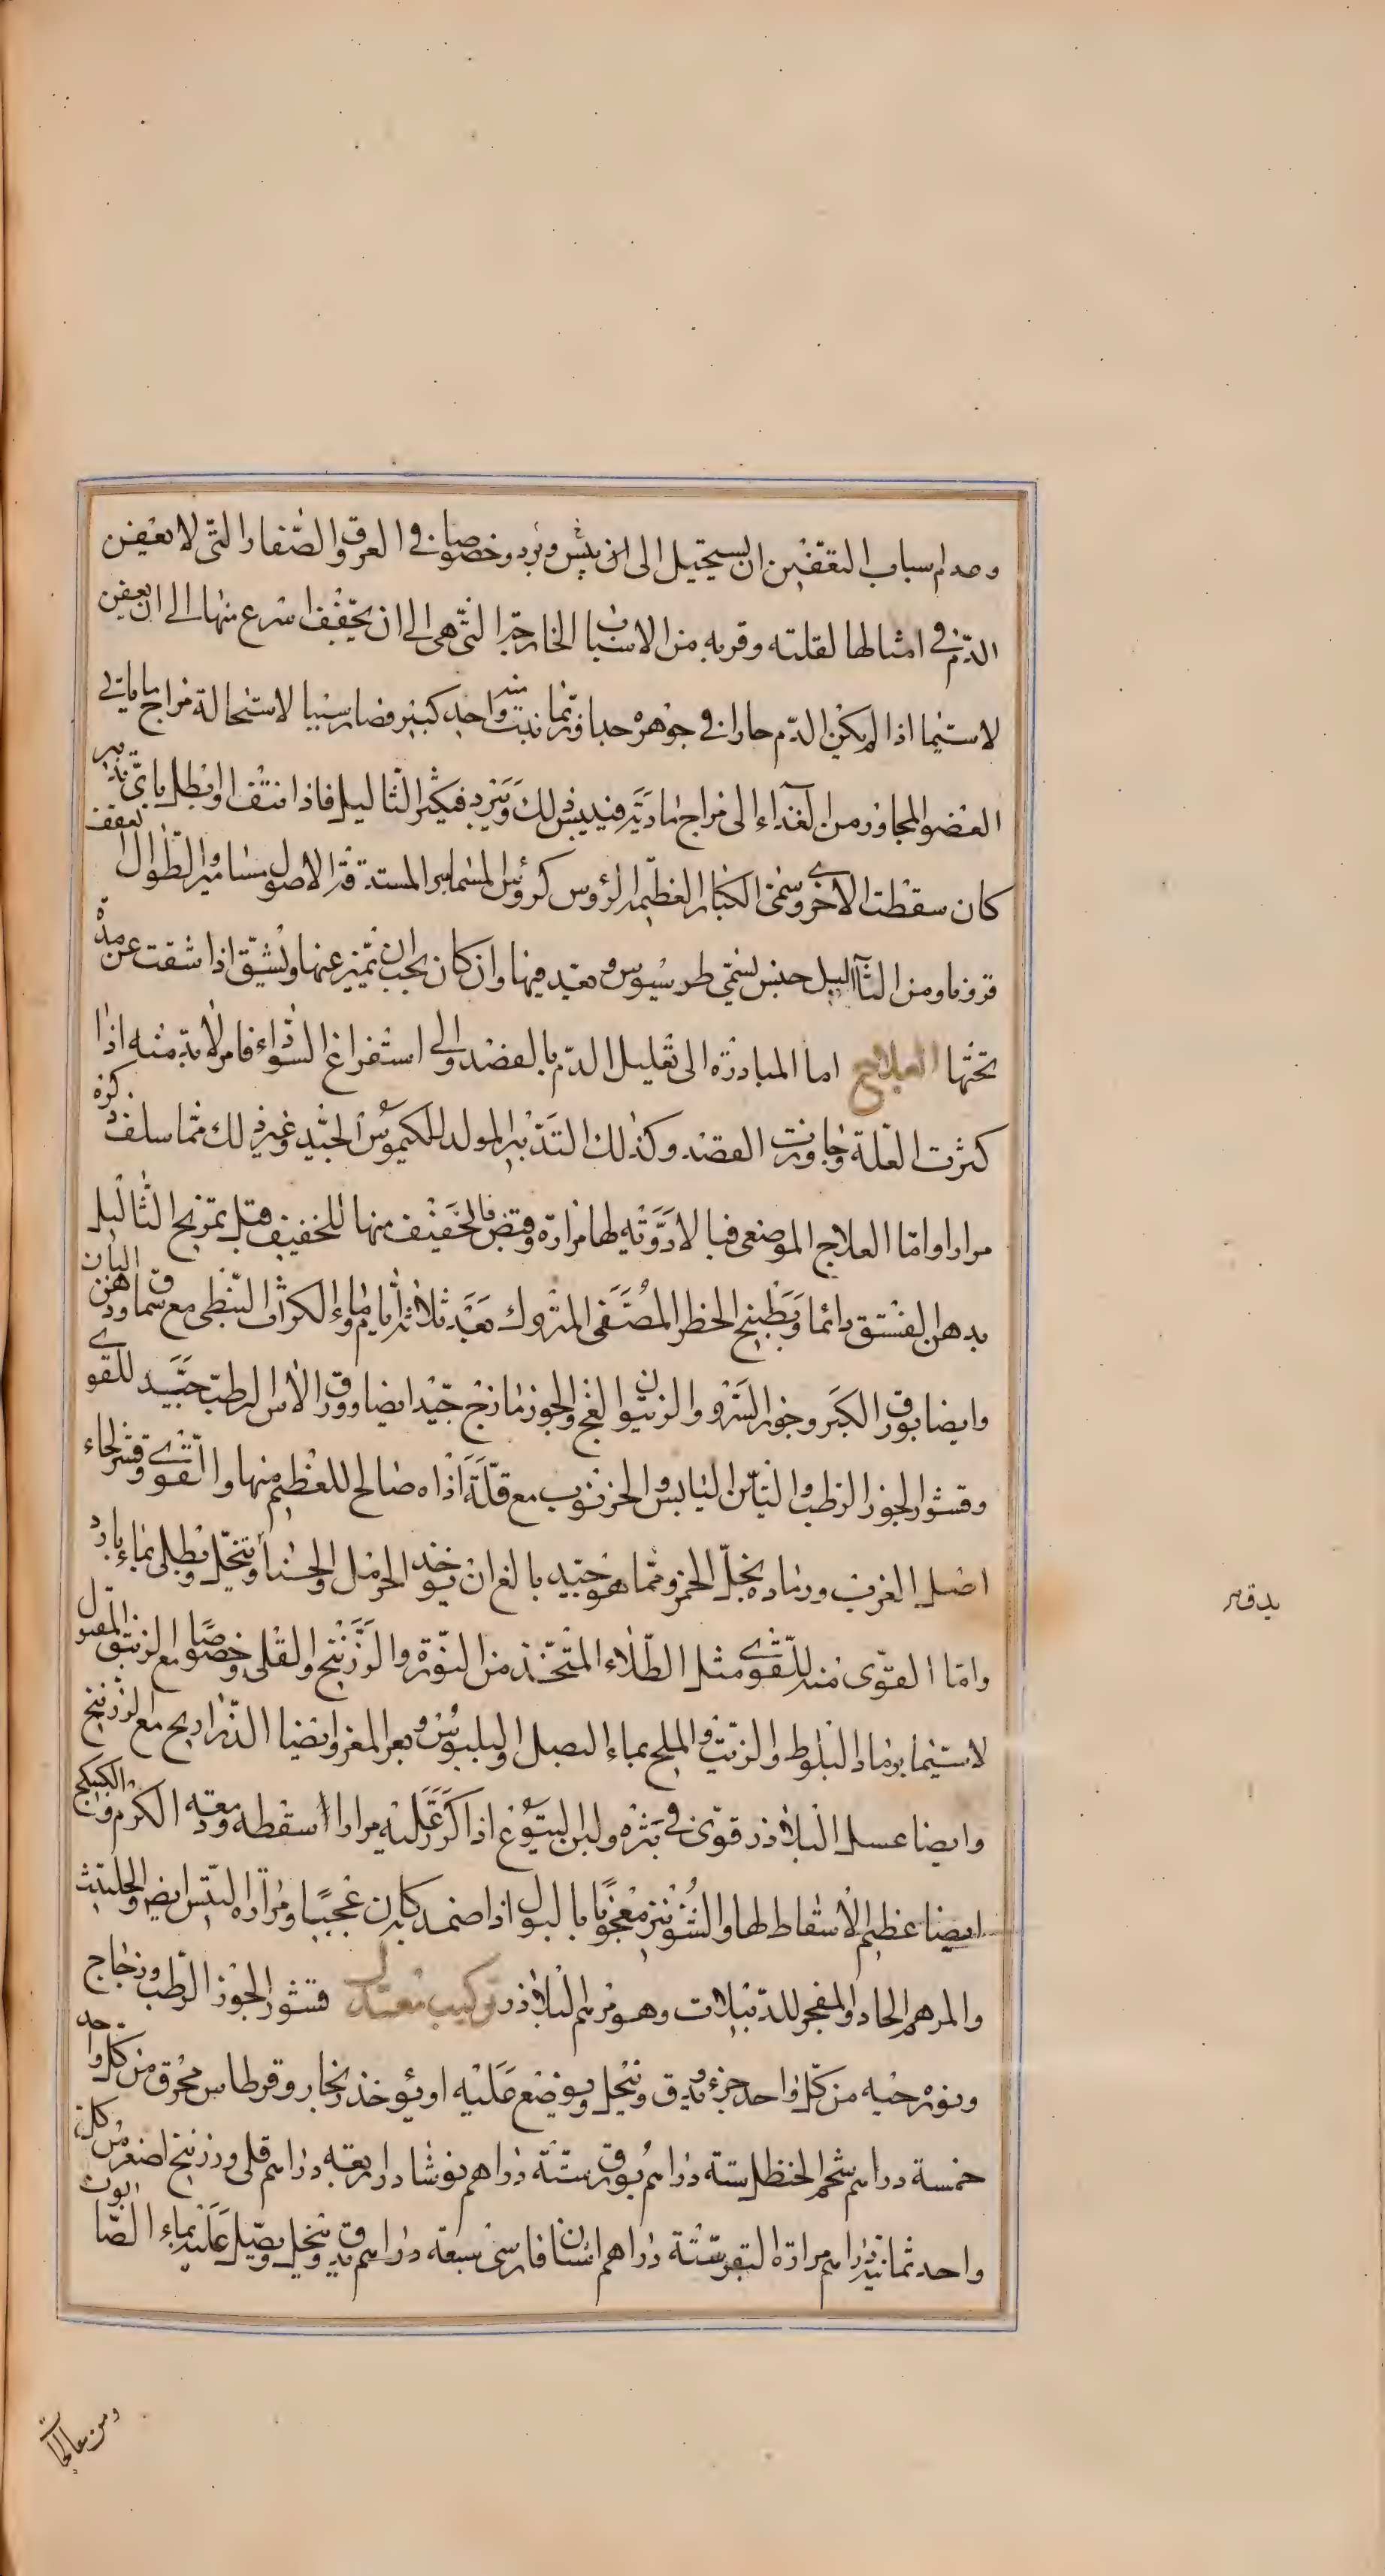 وعدم اسباب التعفين ان يستحيل الى ان ييبس ويبرد وخصوصا في العرق والصغار التي لا يعفن
الدم في امثالها لقلته وقربه من الاسباب الخارجة التي هي الى ان يجفف اسرع منها الى ان يعفن
لا سيما اذا لم يكن الدم حارا في جوهره جدا وربما نبت منه واحد كبير فصار سببا لاستحالة مزاج ما ياتي
العضو المجاور من الغذاء الى مزاج مادته فييبس ذلك ويبرد فيكثر الثاليل فاذا نتف او بطل باي تدبير
كان سقطت الاخرى وسمي الكبار العظيم الرؤوس كرؤس المسامير المستدقة الاصول مسامير والطوال العقف
قرونا ومن الثآليل جنس يسمى طرسيوس وبعد فيها وان كان يجب ان يتميز عنها وتشق اذا شقت عن مدة
تحتها العلاج اما المبادرة الى تقليل الدم بالفصد والى استفراغ السوداء فامر لا بد منه اذا
كثرت العلة وجاوزت القصد وكذلك التدبير المولد للكيموس الجيد وغير ذلك مما سلف ذكره
مرارا واما العلاج الموضعي فبالادوية لها مرارة وقبض فالخفيف منها للخفيف قبل تمريخ الثاليل
بدهن الفستق دائما وبطبيخ الحنطة المصفى المتروك بعد ثلاثة ايام وماء الكراث النبطي مع سماق ودهن البان
وايضا بورق الكبر وجوز السرو والزيتون الفج والجوزمازج جيد ايضا وورق الاس الرطب جيد للقوي
وقشور الجوز الرطب والتين اليابس والخرنوب مع قلة اذاه صالح للعظيم منها والقوي وقشر لحاء
اصل الغرب ورماده بخل الخمر ومما هو جيد بالغ ان يوخذ الحرمل والحشا وينخل ويطلى بماء بارد
واما القوي منه للقوي مثل الطلاء المتخذ من النورة والزرنيخ والقلي وخصوصا مع الزيبق المقتول
لا سيما برماد البلوط والزيت والملح بماء البصل والبلبوس وبعر المعز وايضا الذراريح مع الزرنيخ
وايضا عسل البلاذر قوي في بثره ولبن اليتوع اذا كرر عليه مرارا اسقطه ودمعة الكرم والكبيكج
ايضا عظيم الاسقاط لها والشونيز معجونا بالبول اذا ضمد كان عجيبا ومرارة التيس ايضا والحلتيت
والمرهم الحاد المفجر للدبيلات وهو مرهم البلاذر تركيب معتدل قشور الجوز الرطب وزجاج
ونورة حية من كل واحد جزء يدق وينخل ويوضع عليه او يؤخذ زنجار وقرطاس محرق من كل واحد
خمسة دراهم شحم الحنظل ستة دراهم بورق ستة دراهم نوشادر اربعة دراهم قلي وزرنيخ اصفر من كل
واحد ثمانية دراهم مرارة البقر ستة دراهم اشنان فارسي سبعة دراهم يدق وينخل ويطلى عليه بماء الصابون
ومن معالجات